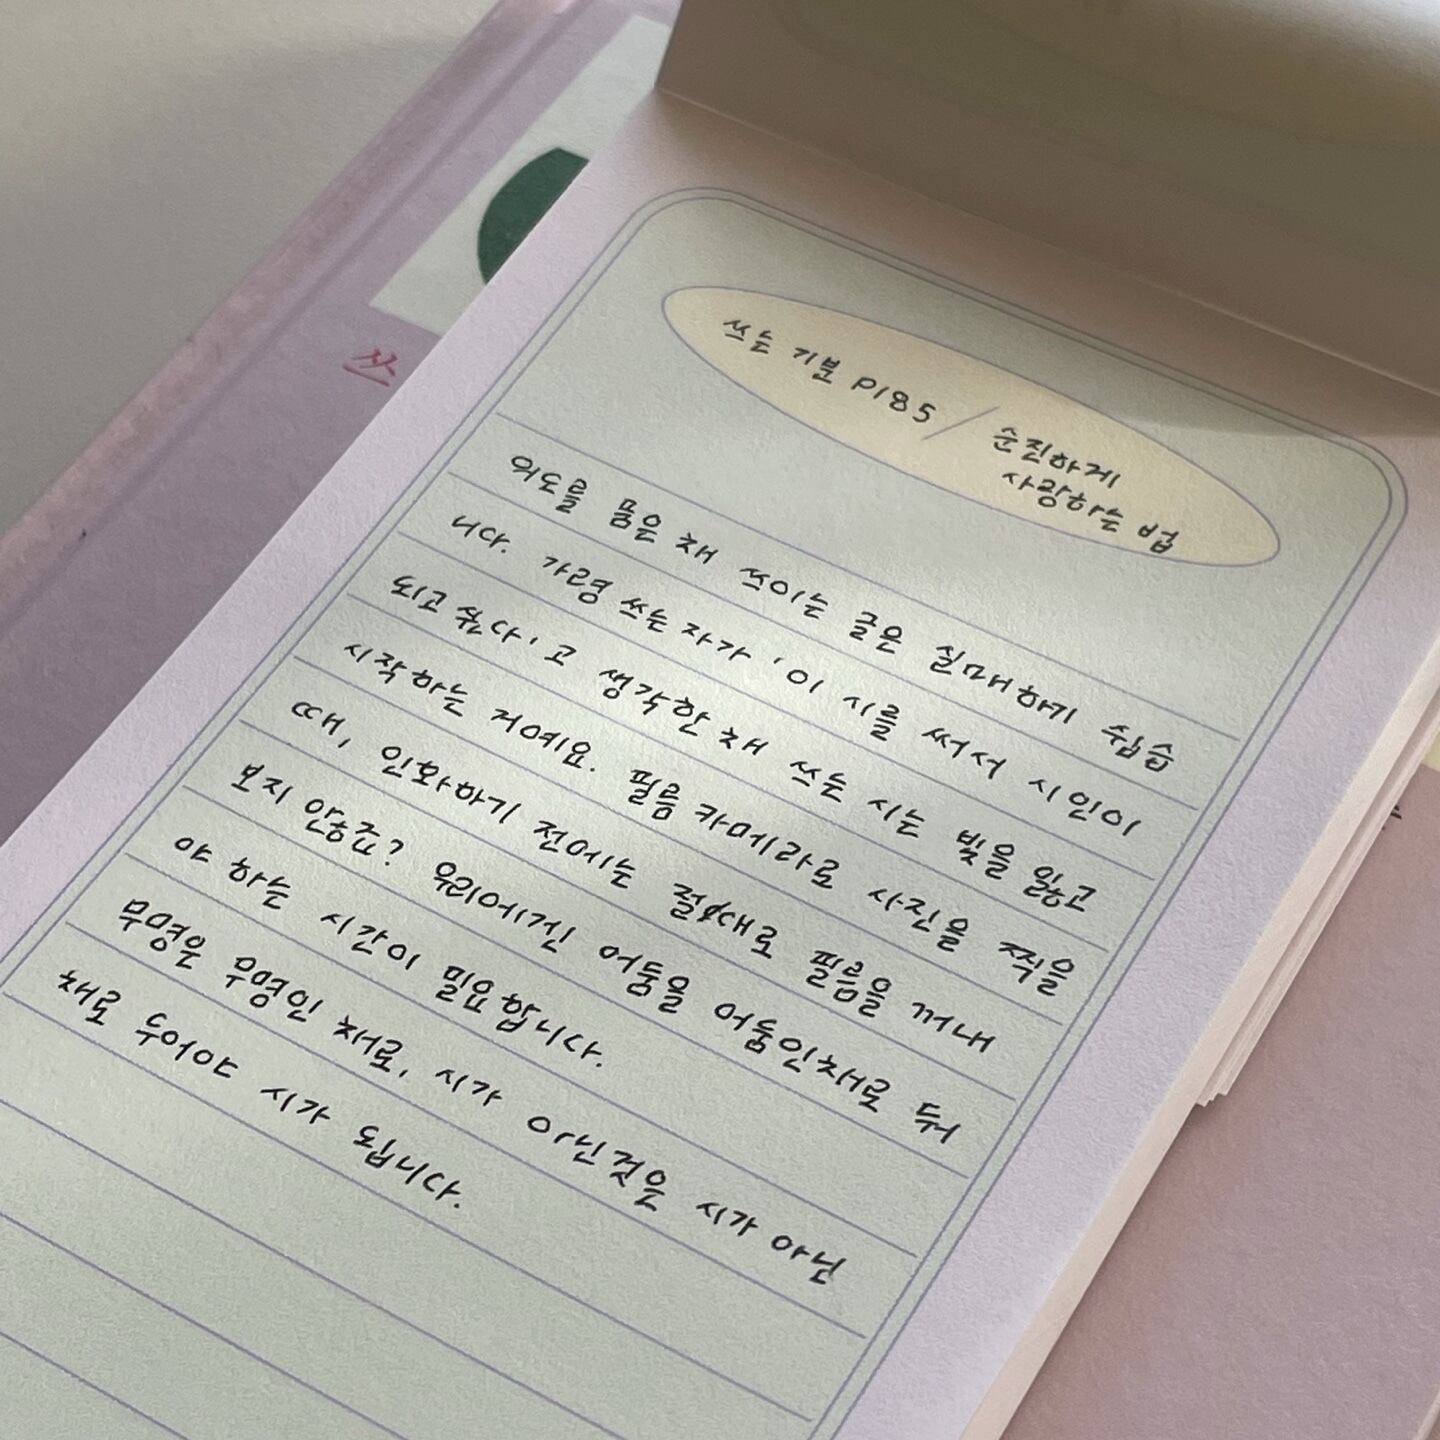 쓰
쓰는 기분 P185 / 순진하게
사랑하는 법
의도를 품은 채 쓰이는 글은 실패하기 쉽습
니다. 가령 쓰는 자가 '이 시를 써서 시인이
되고 싶다'고 생각한 채 쓰는 시는 빛을 잃고
시작하는 거예요. 필름 카메라로 사진을 찍을
때, 인화하기 전에는 절대로 필름을 꺼내
보지 않죠? 우리에겐 어둠을 어둠인채로 둬
야 하는 시간이 필요합니다.
무명은 무명인 채로, 시가 아닌것은 시가 아닌
채로 두어야 시가 됩니다.